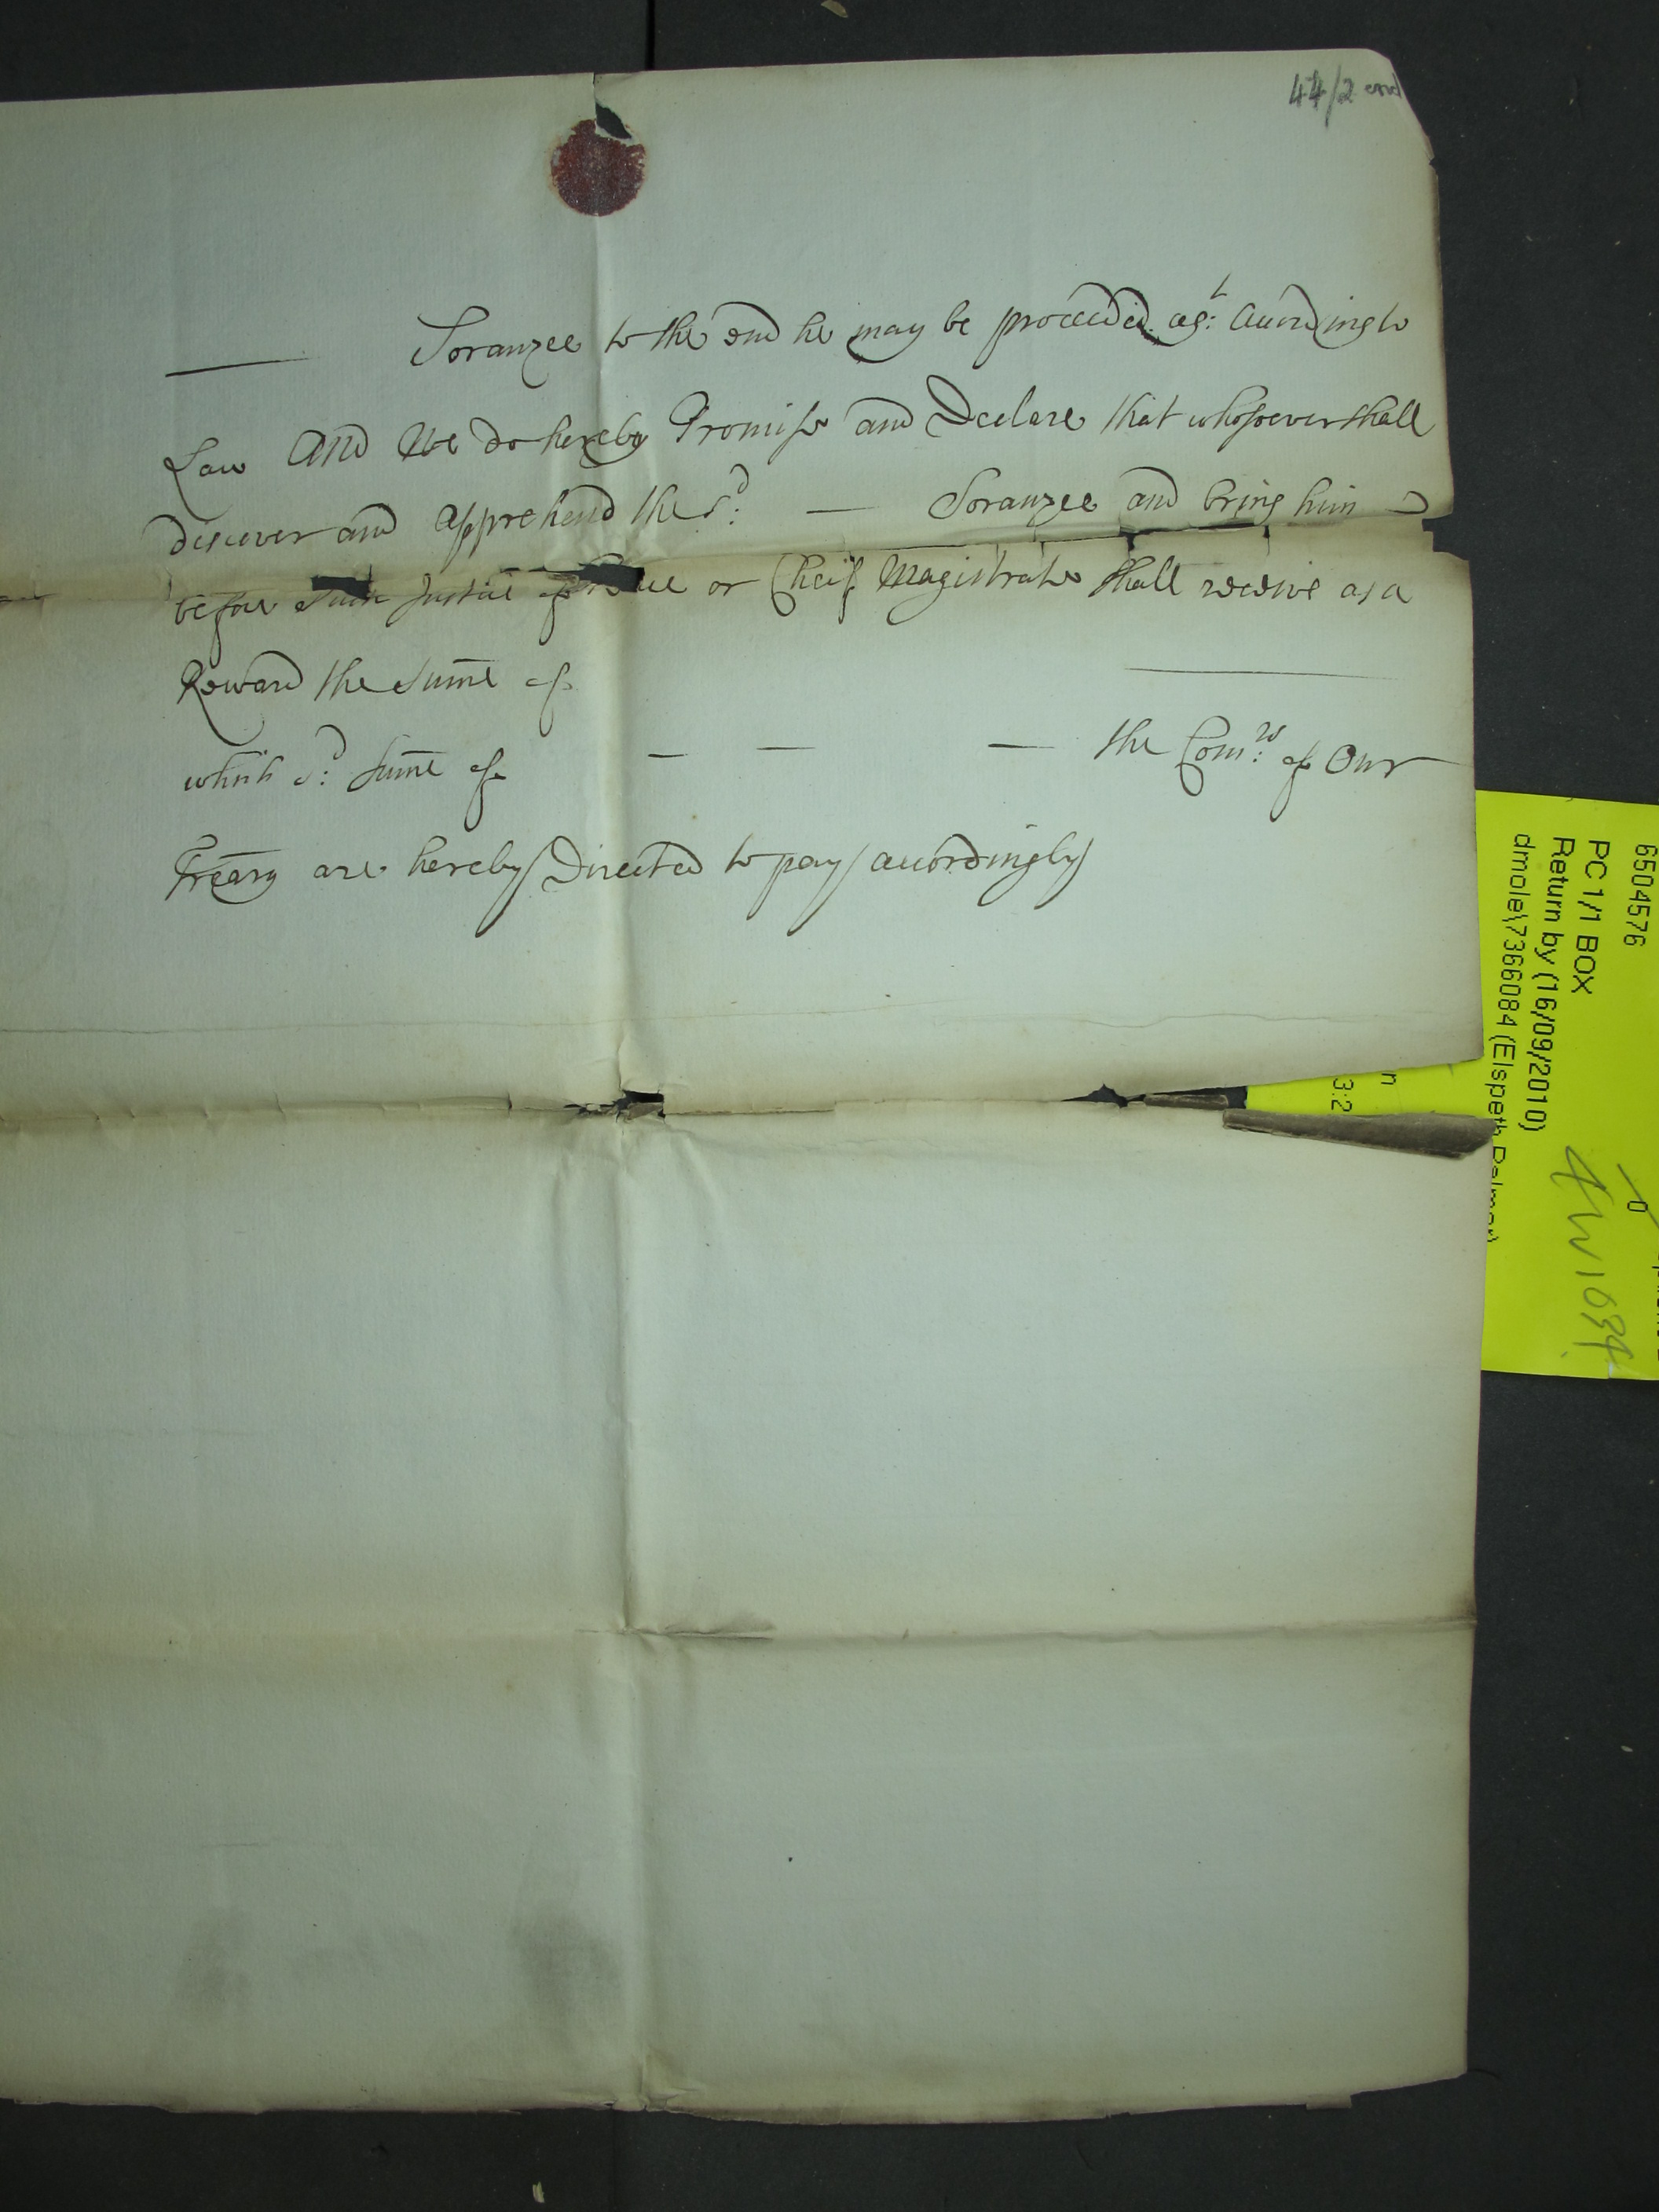 44/2 end
— Soranzee to the end he may be proceeded agt: According to
Law And We do hereby Promise and Declare that whosoever shall
discover and apprehend the sd: — Soranzee and bring him
before such Justice of Peace or Cheif Magistrate shall receive as a
Reward the Sume of —
which sd: Sume of — — — the Comrs: of Our
Treary are hereby Directed to pay accordingly
6504576
PC 1/1 BOX
Return by (16/09/2010)
dmole\7366084 (Elspeth Palmer)